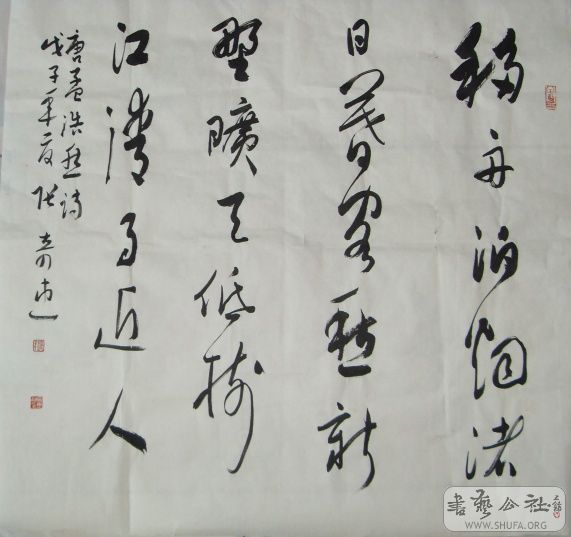 移舟泊烟渚
日暮客愁新
野曠天低樹
江清月近人
唐孟浩然詩
戊子年夏
書藝公社
WWW.SHUFA.ORG